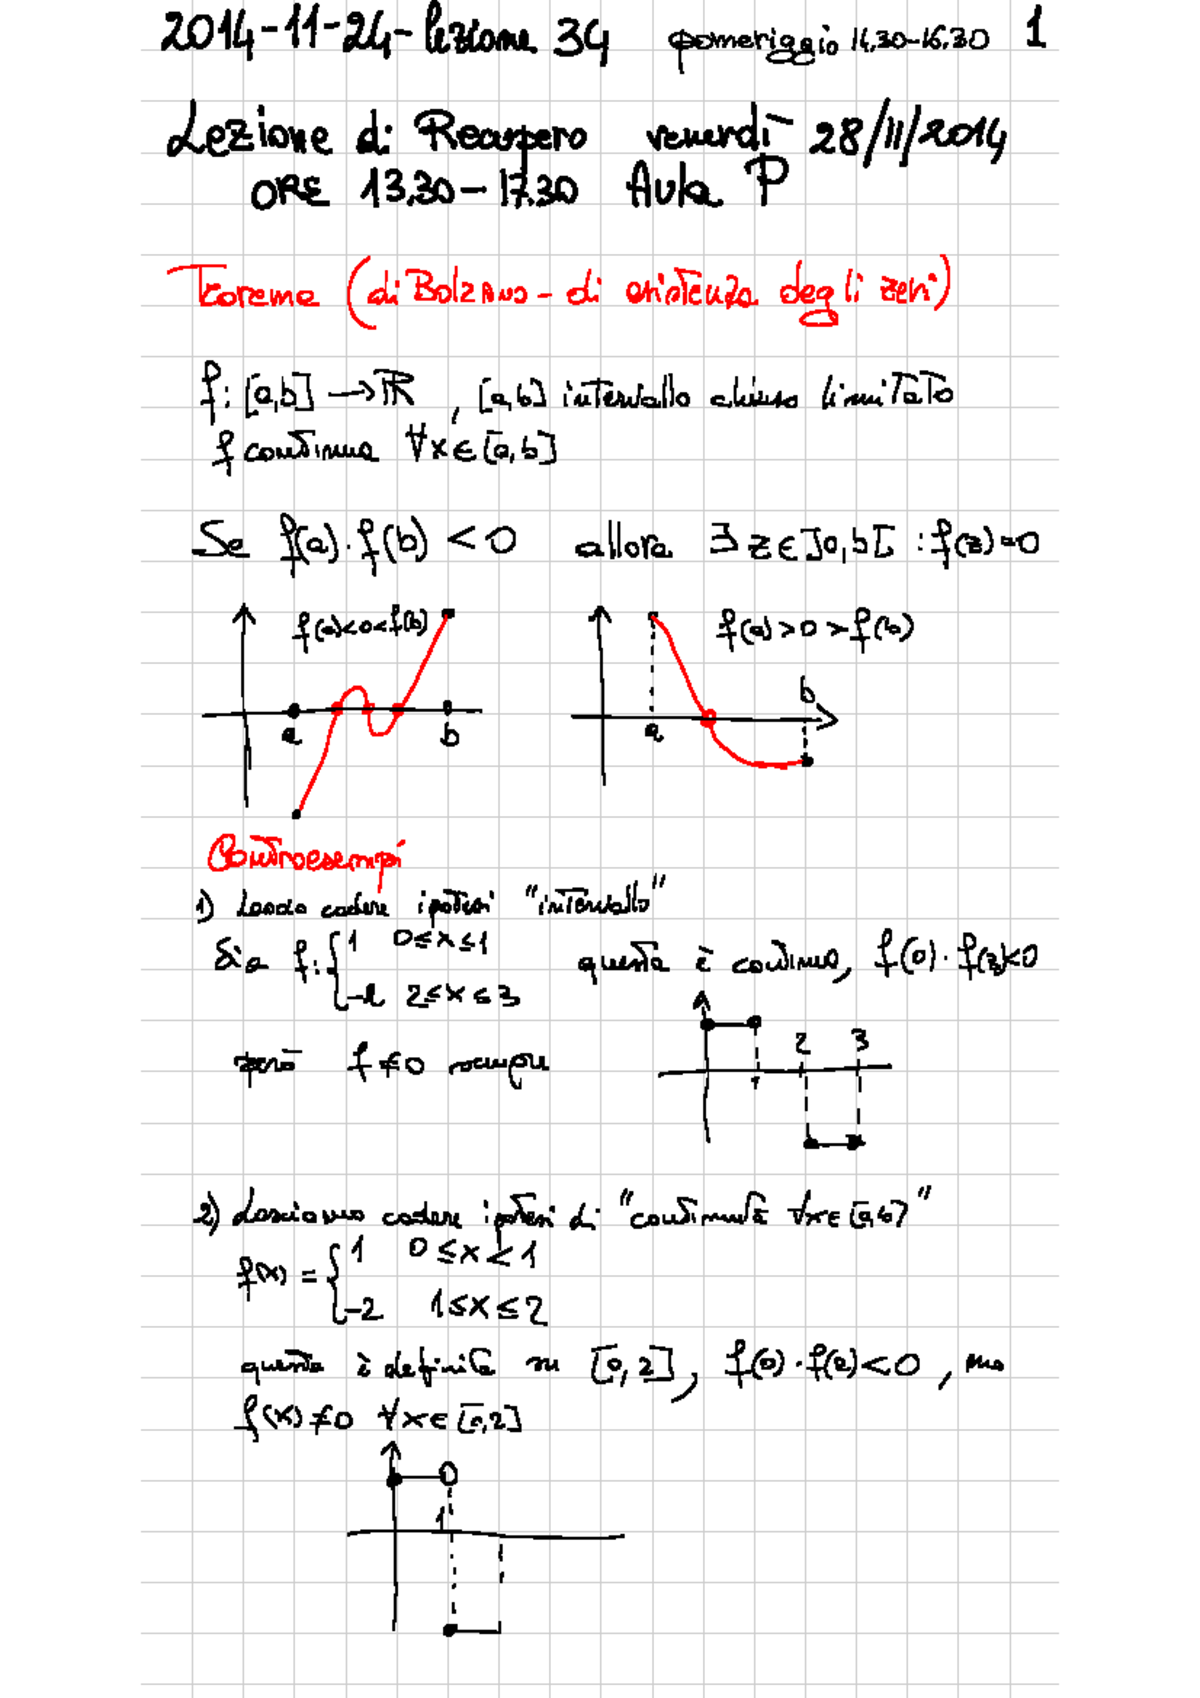 2014-11-24-lezione 34 pomeriggio 14.30-16.30 1
Lezione di Recupero venerdì 28/11/2014
ORE 13.30-17.30 Aula P
Teorema (di Bolzano - di esistenza degli zeri)
f: [a,b] → ℝ , [a,b] intervallo chiuso limitato
f continua ∀x∈[a,b]
Se f(a)·f(b) < 0 allora ∃ z∈]a,b[ : f(z)=0
f(a)<0<f(b) f(a)>0>f(b)
b
a b a
Controesempi
1) Lascio cadere ipotesi "intervallo"
Sia f: { 1 0≤x≤1 questa è continua, f(0)·f(3)<0
-2 2≤x≤3
però f≠0 sempre
2 3
2) Lasciamo cadere ipotesi di "continuità ∀x∈[a,b]"
f(x) = { 1 0≤x<1
-2 1≤x≤2
questa è definita su [0,2], f(0)·f(2)<0, ma
f(x)≠0 ∀x∈[0,2]
1